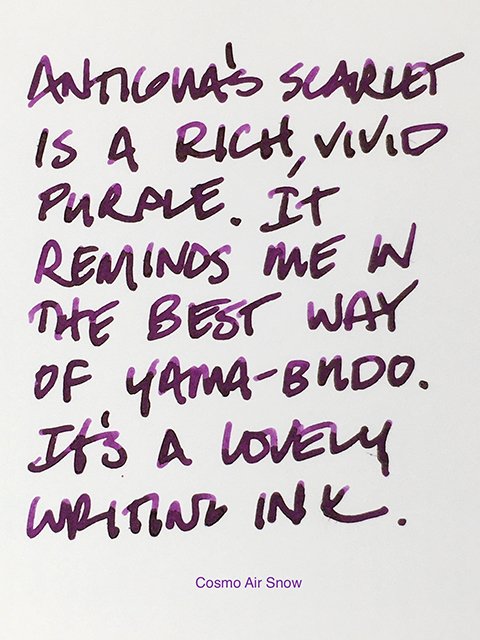 ANTIGUA'S SCARLET
IS A RICH, VIVID
PURPLE. IT
REMINDS ME IN
THE BEST WAY
OF YAMA-BUDO.
IT'S A LOVELY
WRITING INK.
Cosmo Air Snow